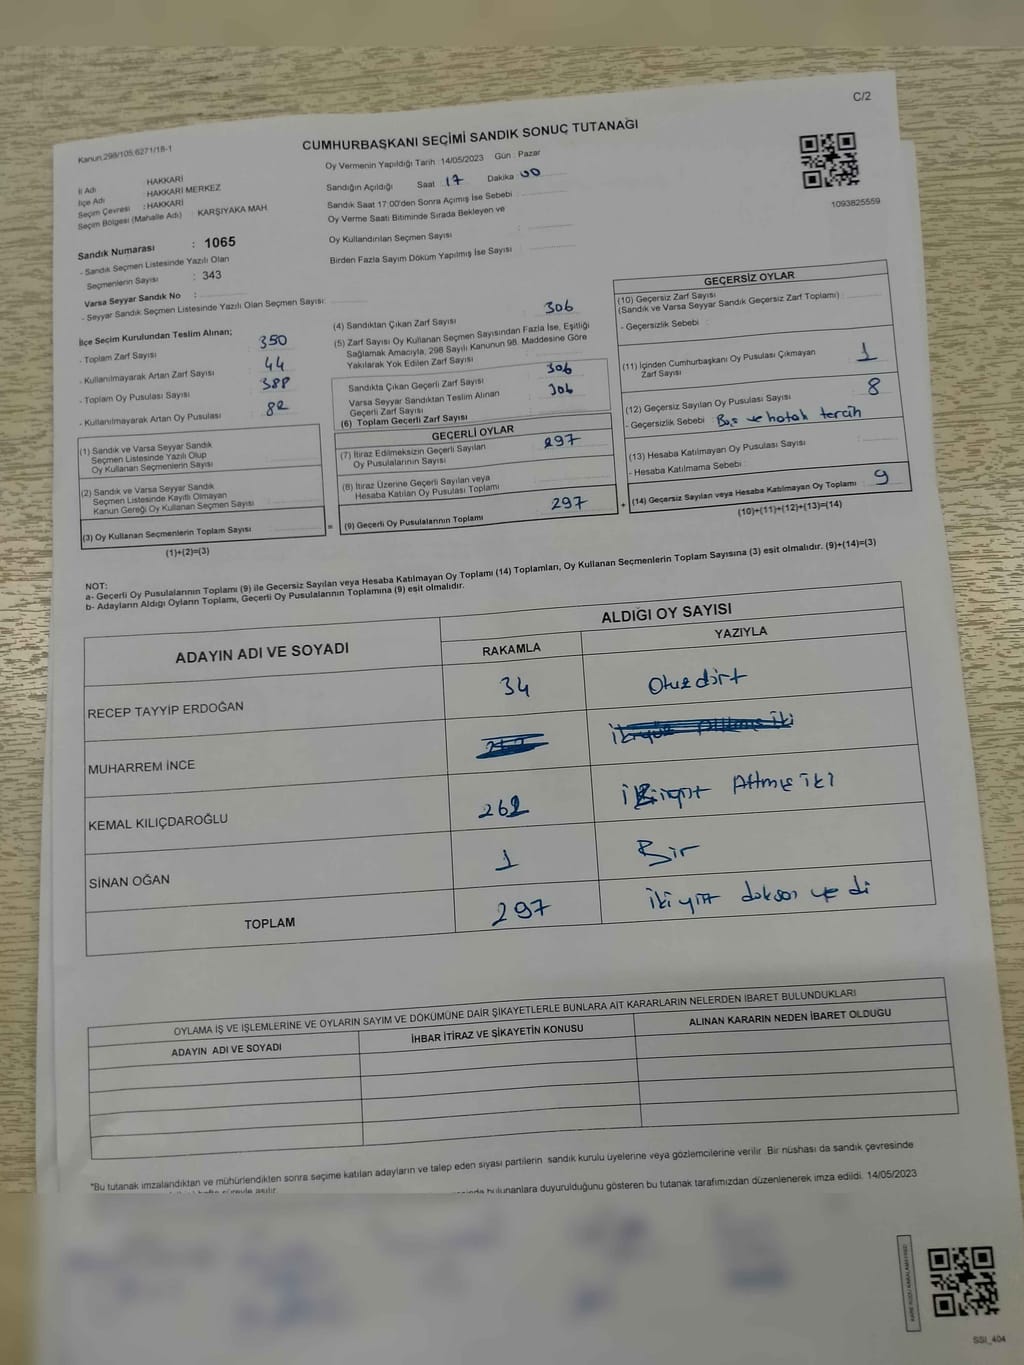 C/2
Kanun:298/105;6271/18-1
CUMHURBAŞKANI SEÇİMİ SANDIK SONUÇ TUTANAĞI
Oy Vermenin Yapıldığı Tarih 14/05/2023 Gün : Pazar
İl Adı HAKKARİ
İlçe Adı : HAKKARİ MERKEZ
Seçim Çevresi : HAKKARİ
Seçim Bölgesi (Mahalle Adı) : KARŞIYAKA MAH
Sandığın Açıldığı Saat 17 Dakika 00
Sandık Saat 17:00'den Sonra Açımış İse Sebebi :
Oy Verme Saati Bitiminde Sırada Bekleyen ve
Oy Kullandırılan Seçmen Sayısı :
Birden Fazla Sayım Döküm Yapılmış İse Sayısı :
1093825559
Sandık Numarası : 1065
- Sandık Seçmen Listesinde Yazılı Olan
Seçmenlerin Sayısı : 343
Varsa Seyyar Sandık No :
- Seyyar Sandık Seçmen Listesinde Yazılı Olan Seçmen Sayısı:
İlçe Seçim Kurulundan Teslim Alınan;
- Toplam Zarf Sayısı 350
- Kullanılmayarak Artan Zarf Sayısı : 44
- Toplam Oy Pusulası Sayısı : 388
- Kullanılmayarak Artan Oy Pusulası : 82
(1) Sandık ve Varsa Seyyar Sandık
Seçmen Listesinde Yazılı Olup
Oy Kullanan Seçmenlerin Sayısı :
(2) Sandık ve Varsa Seyyar Sandık
Seçmen Listesinde Kayıtlı Olmayan
Kanun Gereği Oy Kullanan Seçmen Sayısı :
(3) Oy Kullanan Seçmenlerin Toplam Sayısı :
(1)+(2)=(3)
=
(4) Sandıktan Çıkan Zarf Sayısı 306
(5) Zarf Sayısı Oy Kullanan Seçmen Sayısından Fazla İse, Eşitliği
Sağlamak Amacıyla, 298 Sayılı Kanunun 98. Maddesine Göre
Yakılarak Yok Edilen Zarf Sayısı
Sandıkta Çıkan Geçerli Zarf Sayısı 306
Varsa Seyyar Sandıktan Teslim Alınan
Geçerli Zarf Sayısı 306
(6) Toplam Geçerli Zarf Sayısı
GEÇERLİ OYLAR
(7) İtiraz Edilmeksizin Geçerli Sayılan
Oy Pusulalarının Sayısı 297
(8) İtiraz Üzerine Geçerli Sayılan veya
Hesaba Katılan Oy Pusulası Toplamı
(9) Geçerli Oy Pusulalarının Toplamı 297
+
GEÇERSİZ OYLAR
(10) Geçersiz Zarf Sayısı
(Sandık ve Varsa Seyyar Sandık Geçersiz Zarf Toplamı) :
- Geçersizlik Sebebi :
(11) İçinden Cumhurbaşkanı Oy Pusulası Çıkmayan
Zarf Sayısı 1
(12) Geçersiz Sayılan Oy Pusulası Sayısı 8
- Geçersizlik Sebebi : Boş ve hatalı tercih
(13) Hesaba Katılmayan Oy Pusulası Sayısı :
- Hesaba Katılmama Sebebi :
(14) Geçersiz Sayılan veya Hesaba Katılmayan Oy Toplamı 9
(10)+(11)+(12)+(13)=(14)
NOT:
a- Geçerli Oy Pusulalarının Toplamı (9) ile Geçersiz Sayılan veya Hesaba Katılmayan Oy Toplamı (14) Toplamları, Oy Kullanan Seçmenlerin Toplam Sayısına (3) eşit olmalıdır. (9)+(14)=(3)
b- Adayların Aldığı Oyların Toplamı, Geçerli Oy Pusulalarının Toplamına (9) eşit olmalıdır.
ADAYIN ADI VE SOYADI
ALDIĞI OY SAYISI
RAKAMLA YAZIYLA
RECEP TAYYİP ERDOĞAN 34 Otuzdört
MUHARREM İNCE
KEMAL KILIÇDAROĞLU 262 İkiyüz Altmış iki
SİNAN OĞAN 1 Bir
TOPLAM 297 İkiyüz doksan yedi
OYLAMA İŞ VE İŞLEMLERİNE VE OYLARIN SAYIM VE DÖKÜMÜNE DAİR ŞİKAYETLERLE BUNLARA AİT KARARLARIN NELERDEN İBARET BULUNDUKLARI
ADAYIN ADI VE SOYADI İHBAR İTİRAZ VE ŞİKAYETİN KONUSU ALINAN KARARIN NEDEN İBARET OLDUĞU
*Bu tutanak imzalandıktan ve mühürlendikten sonra seçime katılan adayların ve talep eden siyasi partilerin sandık kurulu üyelerine veya gözlemcilerine verilir. Bir nüshası da sandık çevresinde
bulunanlara duyurulduğunu gösteren bu tutanak tarafımızdan düzenlenerek imza edildi. 14/05/2023
SSI_404